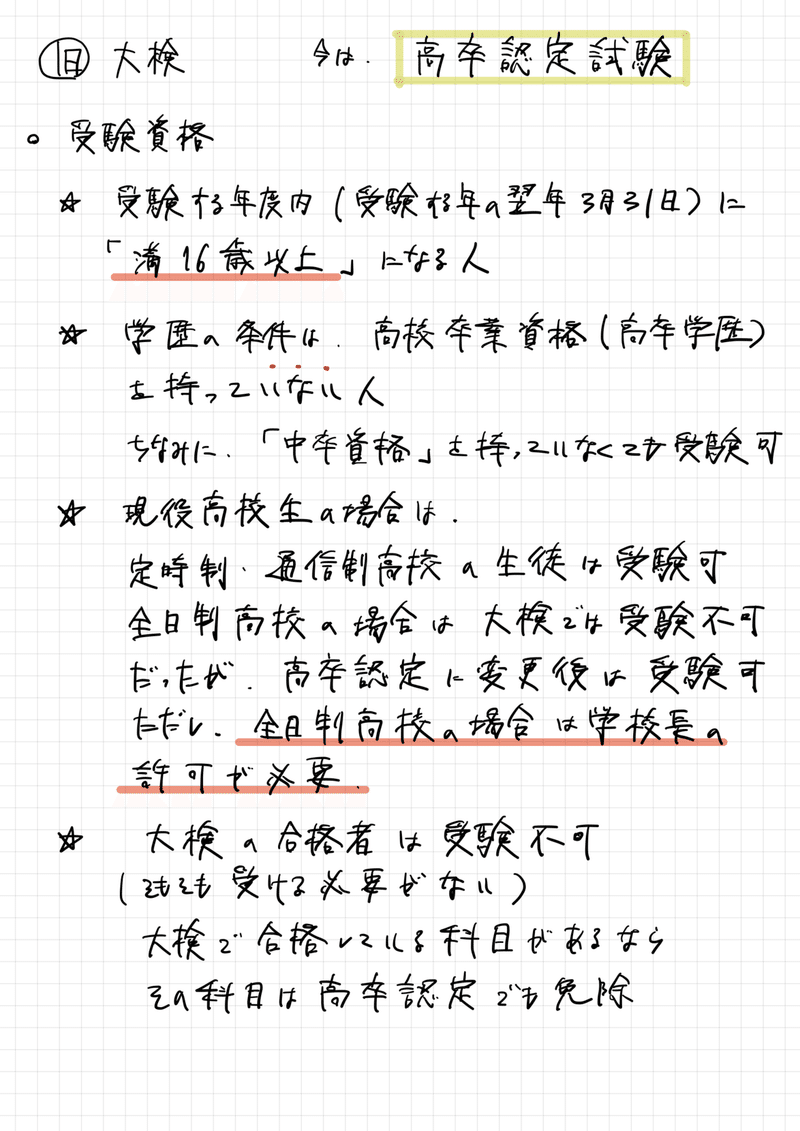 旧 大検 今は、高卒認定試験
。受験資格
☆ 受験する年度内(受験する年の翌年3月31日)に
「満16歳以上」になる人
☆ 学歴の条件は、高校卒業資格(高卒学歴)
を持っていない人
ちなみに、「中卒資格」を持っていなくても受験可
☆ 現役高校生の場合は、
定時制・通信制高校の生徒は受験可
全日制高校の場合は大検では受験不可
だったが、高卒認定に変更後は受験可
ただし、全日制高校の場合は学校長の
許可が必要、
☆ 大検の合格者は受験不可
(そもそも受ける必要がない)
大検で合格している科目があるなら
その科目は高卒認定でも免除